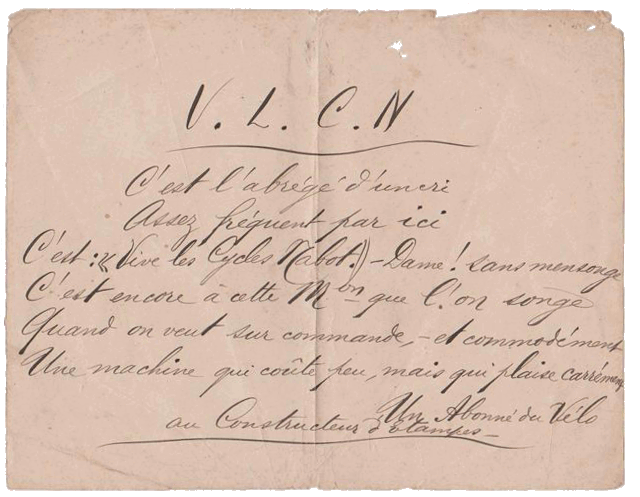 V. L. C. N
C'est l'abrégé d'un cri
Assez fréquent par ici
C'est : « Vive les Cycles Nabot. » – Dame ! sans mensonge
C'est encore à cette Mon que l'on songe
Quand on veut sur commande, – et commodément
Une machine qui coûte peu, mais qui plaise carrément
Un Abonné du Vélo
au Constructeur d'Etampes –